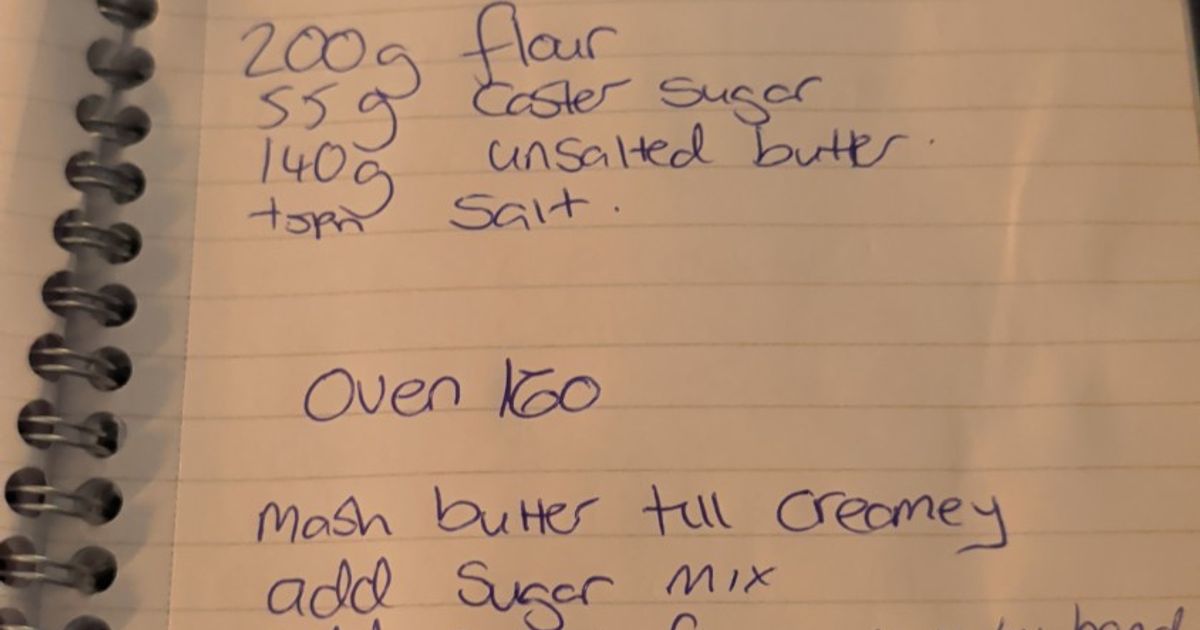 200g flour
55g Caster Sugar
140g unsalted butter.
tspn Salt.
Oven 160
Mash butter till creamey
add Sugar mix
hand